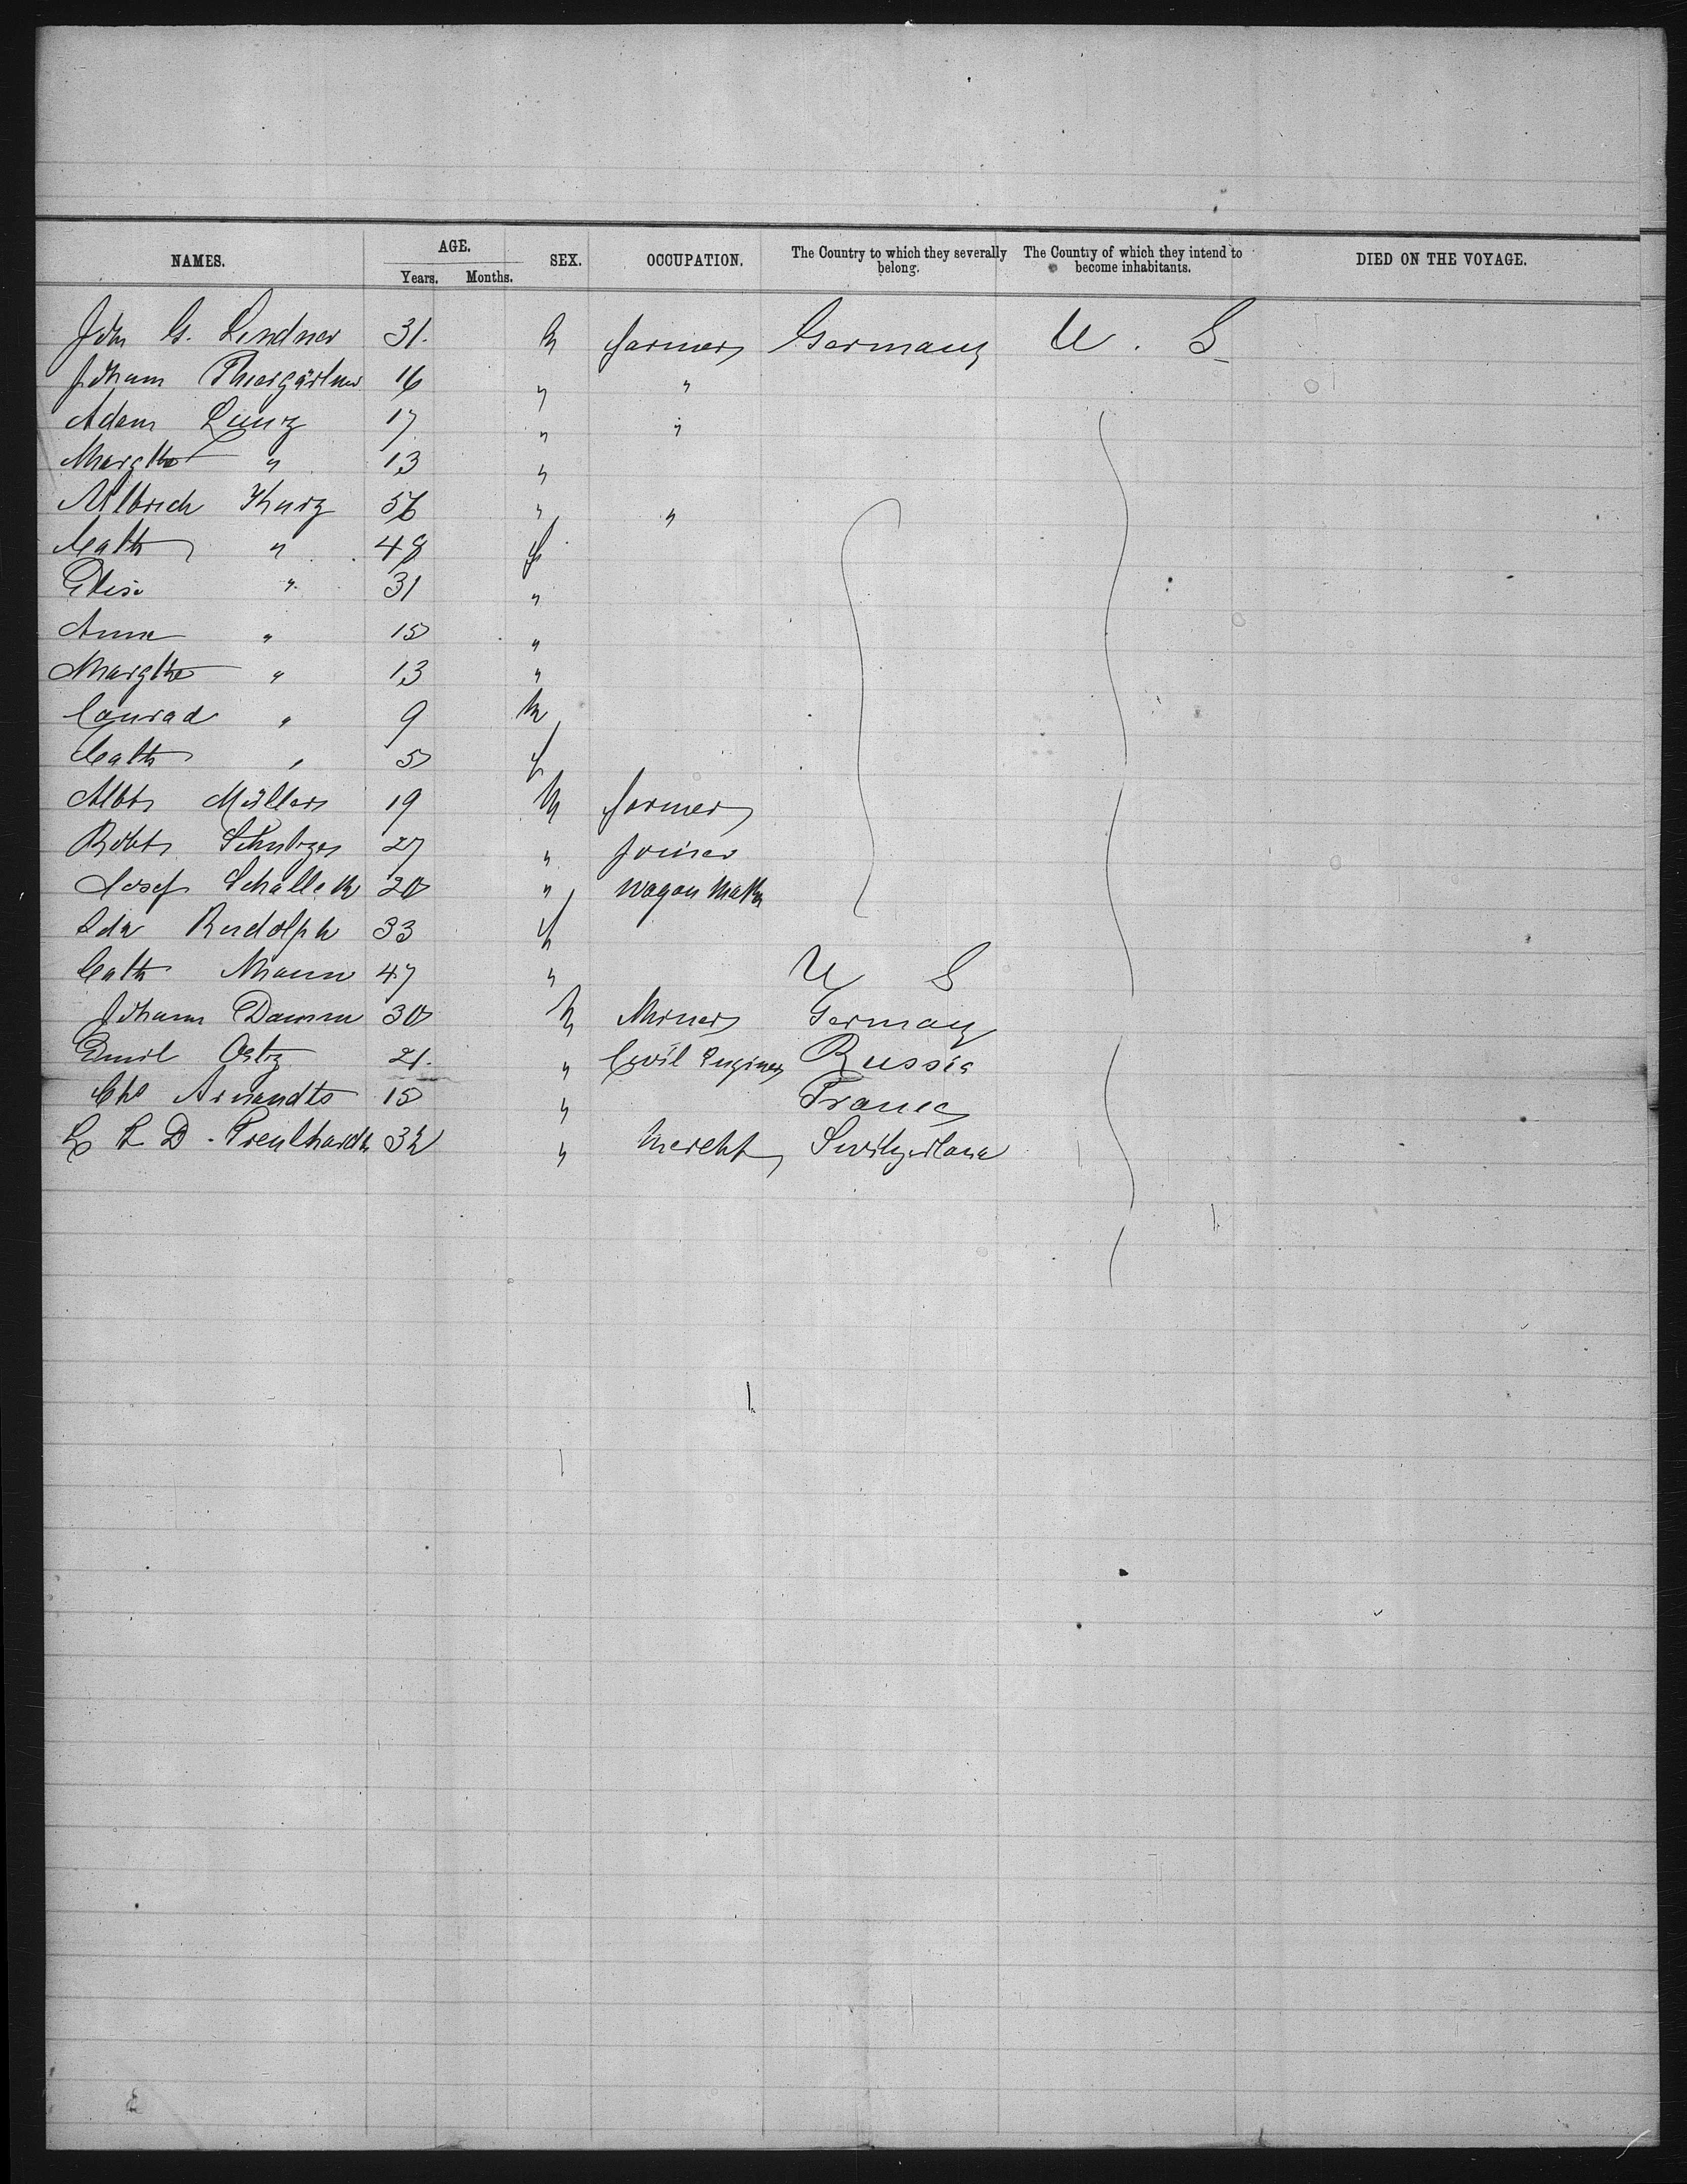 NAMES. AGE. SEX. OCCUPATION. The Country to which they severally belong. The Country of which they intend to become inhabitants. DIED ON THE VOYAGE.
Years. Months.
John G. Lindner 31. M farmer Germany U. S.
Johann Thiergärtner 16 " "
Adam Lunz 17 " "
Margthe " 13 "
Albrich Kurz 56 " "
Cath " 48 f
Elise " 31 "
Anna " 15 "
Margthe " 13 "
Conrad " 9 M
Cath " 5 f
Albt Müller 19 M farmer
Robt 27 " Joiner
Josef Schalleck 20 " Wagon Mak
Ida Rudolph 33 f
Cath Mann 47 " U S
Johann Damm 30 M Miner Germany
Emil 21. " Civil Engineer Russia
Chs Arnandts 15 " France
L D. 32 " Mercht Switzerland